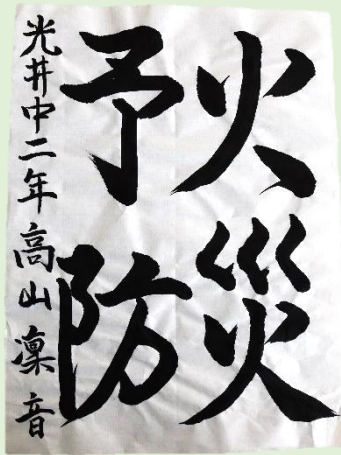 火災
予防
光井中二年高山凛音